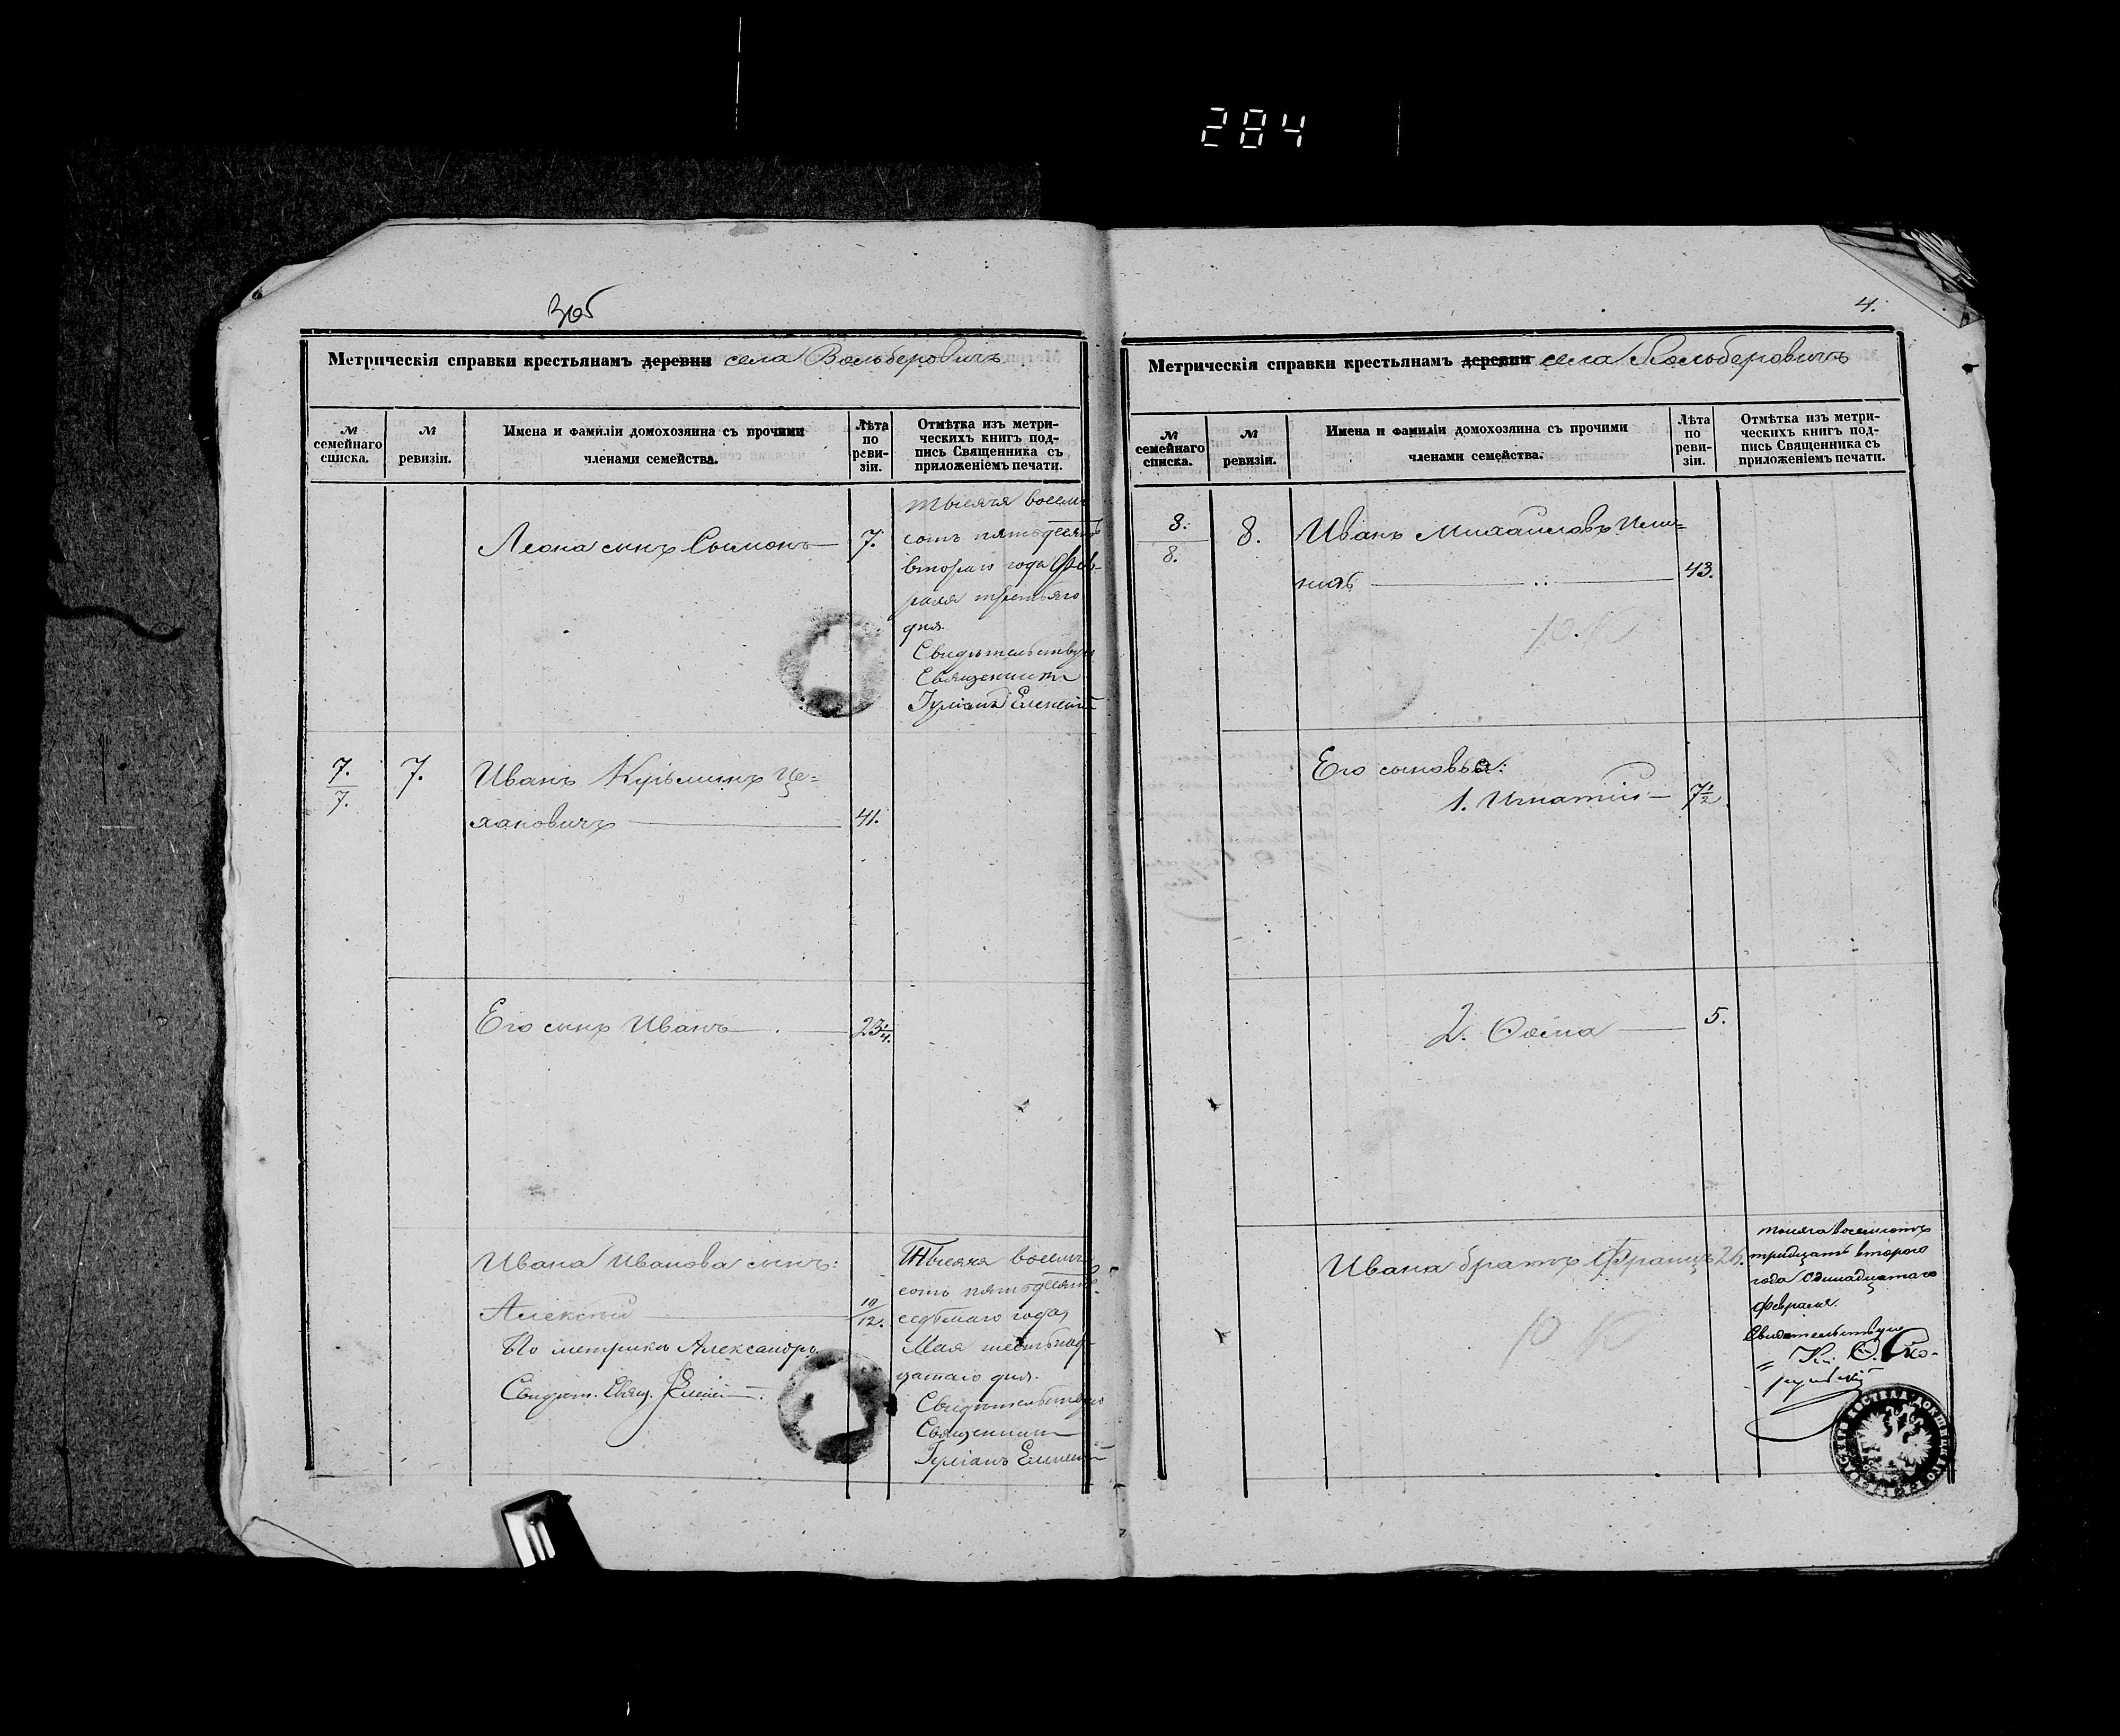 284
3об
Метрическія справки крестьянамъ деревни села Вольберовичъ
№ семейнаго списка.
№ ревизіи.
Имена и фамиліи домохозяина съ прочими
членами семейства.
Лѣта по реви-зіи.
Отмѣтка изъ метри-
ческихъ книгъ под-
пись Священника съ
приложеніемъ печати.
Леона сынъ Сымонъ 7.
тысяча восемь
сотъ пятьдесятъ
втораго года Фев-
раля третьяго
дня.
Свидѣтельствую
Священникъ
Іуліанъ
7.
7.
7. Иванъ Кузьминъ Це=
хановичъ 41.
Его сынъ Иванъ 23 1/4.
Ивана Иванова сынъ:
Алексѣй 10/12.
По метрикѣ Александръ
Свидѣт. Свящ.
Тысяча восемь
сотъ пятьдесятъ
седьмаго года
Мая шестьнад-
цатаго дня.
Свидѣтельствую
Священникъ
Іуліанъ
4.
Метрическія справки крестьянамъ деревни села Вольберовичъ
№ семейнаго списка.
№ ревизіи.
Имена и фамиліи домохозяина съ прочими
членами семейства.
Лѣта по реви-зіи.
Отмѣтка изъ метри-
ческихъ книгъ под-
пись Священника съ
приложеніемъ печати.
8.
8.
8. Иванъ Михайловъ
43.
Р. К.
Его сыновья:
1. Игнатій 7 1/2
2. Фома 5.
Ивана братъ Францъ 26.
Р. К.
тысяча восемьсотъ
тридцать второго
года одинадцатаго
февраля.
Свидѣтельствую